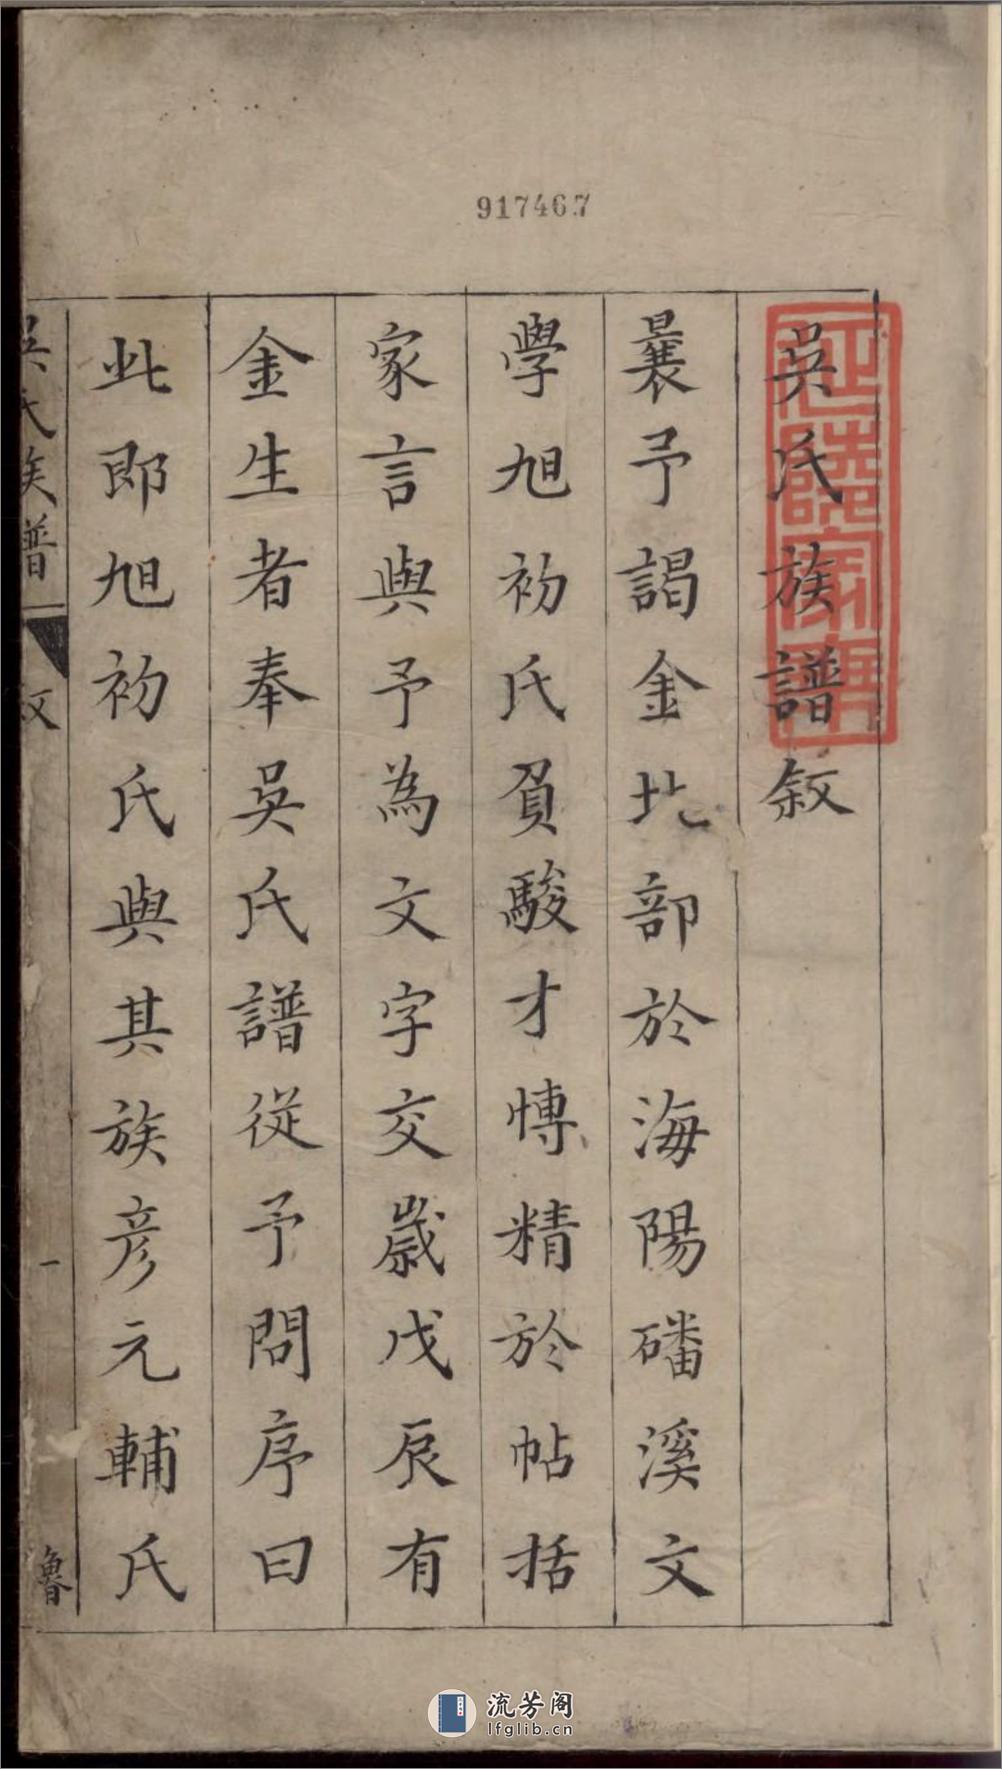 917467
吳氏族譜敘
曩予謁金北部於海陽磻溪文
學旭初氏負駿才博精於帖括
家言與予為文字交歲戊辰有
金生者奉吳氏譜從予問序曰
此即旭初氏與其族彥元輔氏
吳氏族譜
敘
一
魯
流芳阁
lfglib.cn